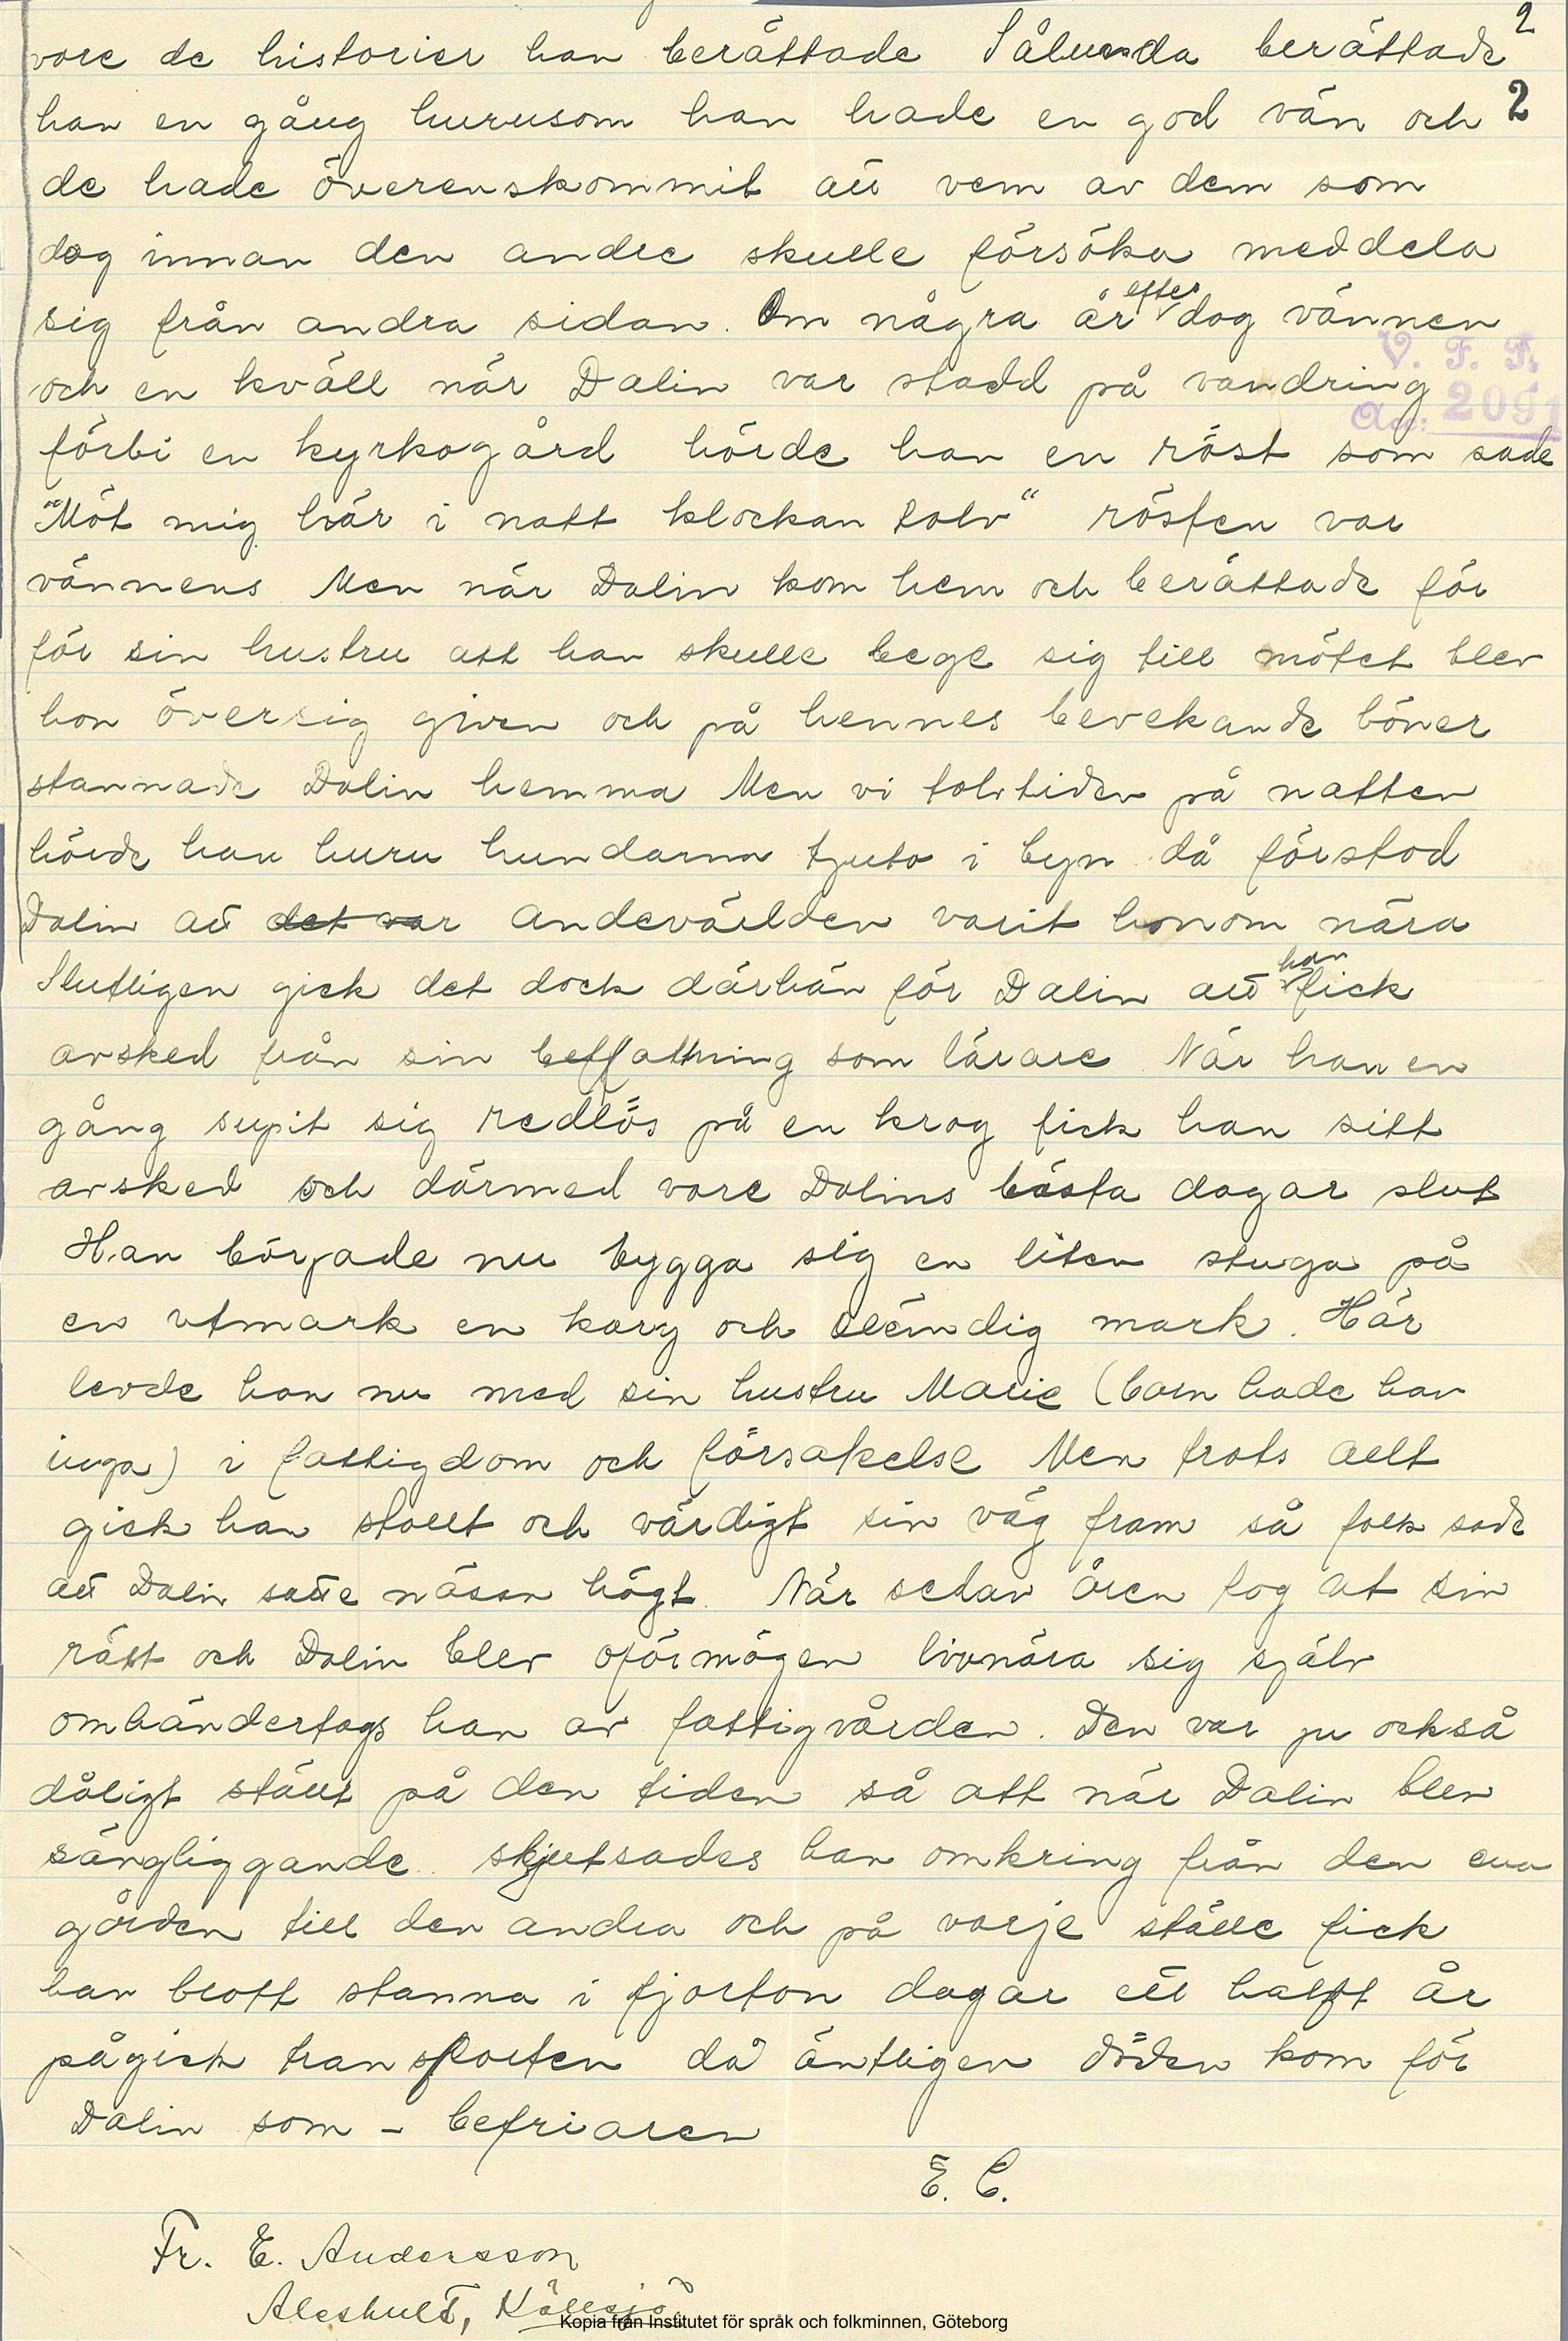 2
vore de historier han berättade Sålunda berättade
han en gång hurusom han hade en god vän och 2
de hade överenskommit att vem av dem som
dog innan den andre skulle försöka meddela
sig från andra sidan. Om några år efter dog vännen
V. F. F.
och en kväll när Dalin var stadd på vandring
Acc: 2091
förbi en kyrkogård hörde han en röst som sade
"Möt mig här i natt klockan tolv" rösten var
vännens Men när Dalin kom hem och berättade för
för sin hustru att han skulle bege sig till mötet blev
hon översig given och på hennes bevekande böner
stannade Dalin hemma Men vi tolvtiden på natten
hörde han huru hundarna tjuto i byn då förstod
Dalin att det var andevärlden varit honom nära
Slutligen gick det dock därhän för Dalin att han fick
avsked från sin beffattning som lärare När han en
gång supit sig redlös på en krog fick han sitt
avsked och därmed vore Dalins bästa dagar slut
Han började nu bygga sig en liten stuga på
en utmark en karg och eländig mark. Här
levde han nu med sin hustru Marie (barn hade han
inga) i fattigdom och försakelse Men trots allt
gick han stollt och värdigt sin väg fram så folk sade
att Dalin satte näsan högt. När sedan åren tog ut sin
rätt och Dalin blev oförmögen livnära sig själv
omhändertogs han av fattigvården. Den var ju också
dåligt ställt på den tiden så att när Dalin blev
sängliggande skjutsades han omkring från den ena
gården till den andra och på varje ställe fick
han blott stanna i fjorton dagar ett halft år
pågick transporten då äntligen döden kom för
Dalin som - befriaren
E. C.
Fr. E. Andersson
Aleshult, Källsjö
Kopia från Institutet för språk och folkminnen, Göteborg